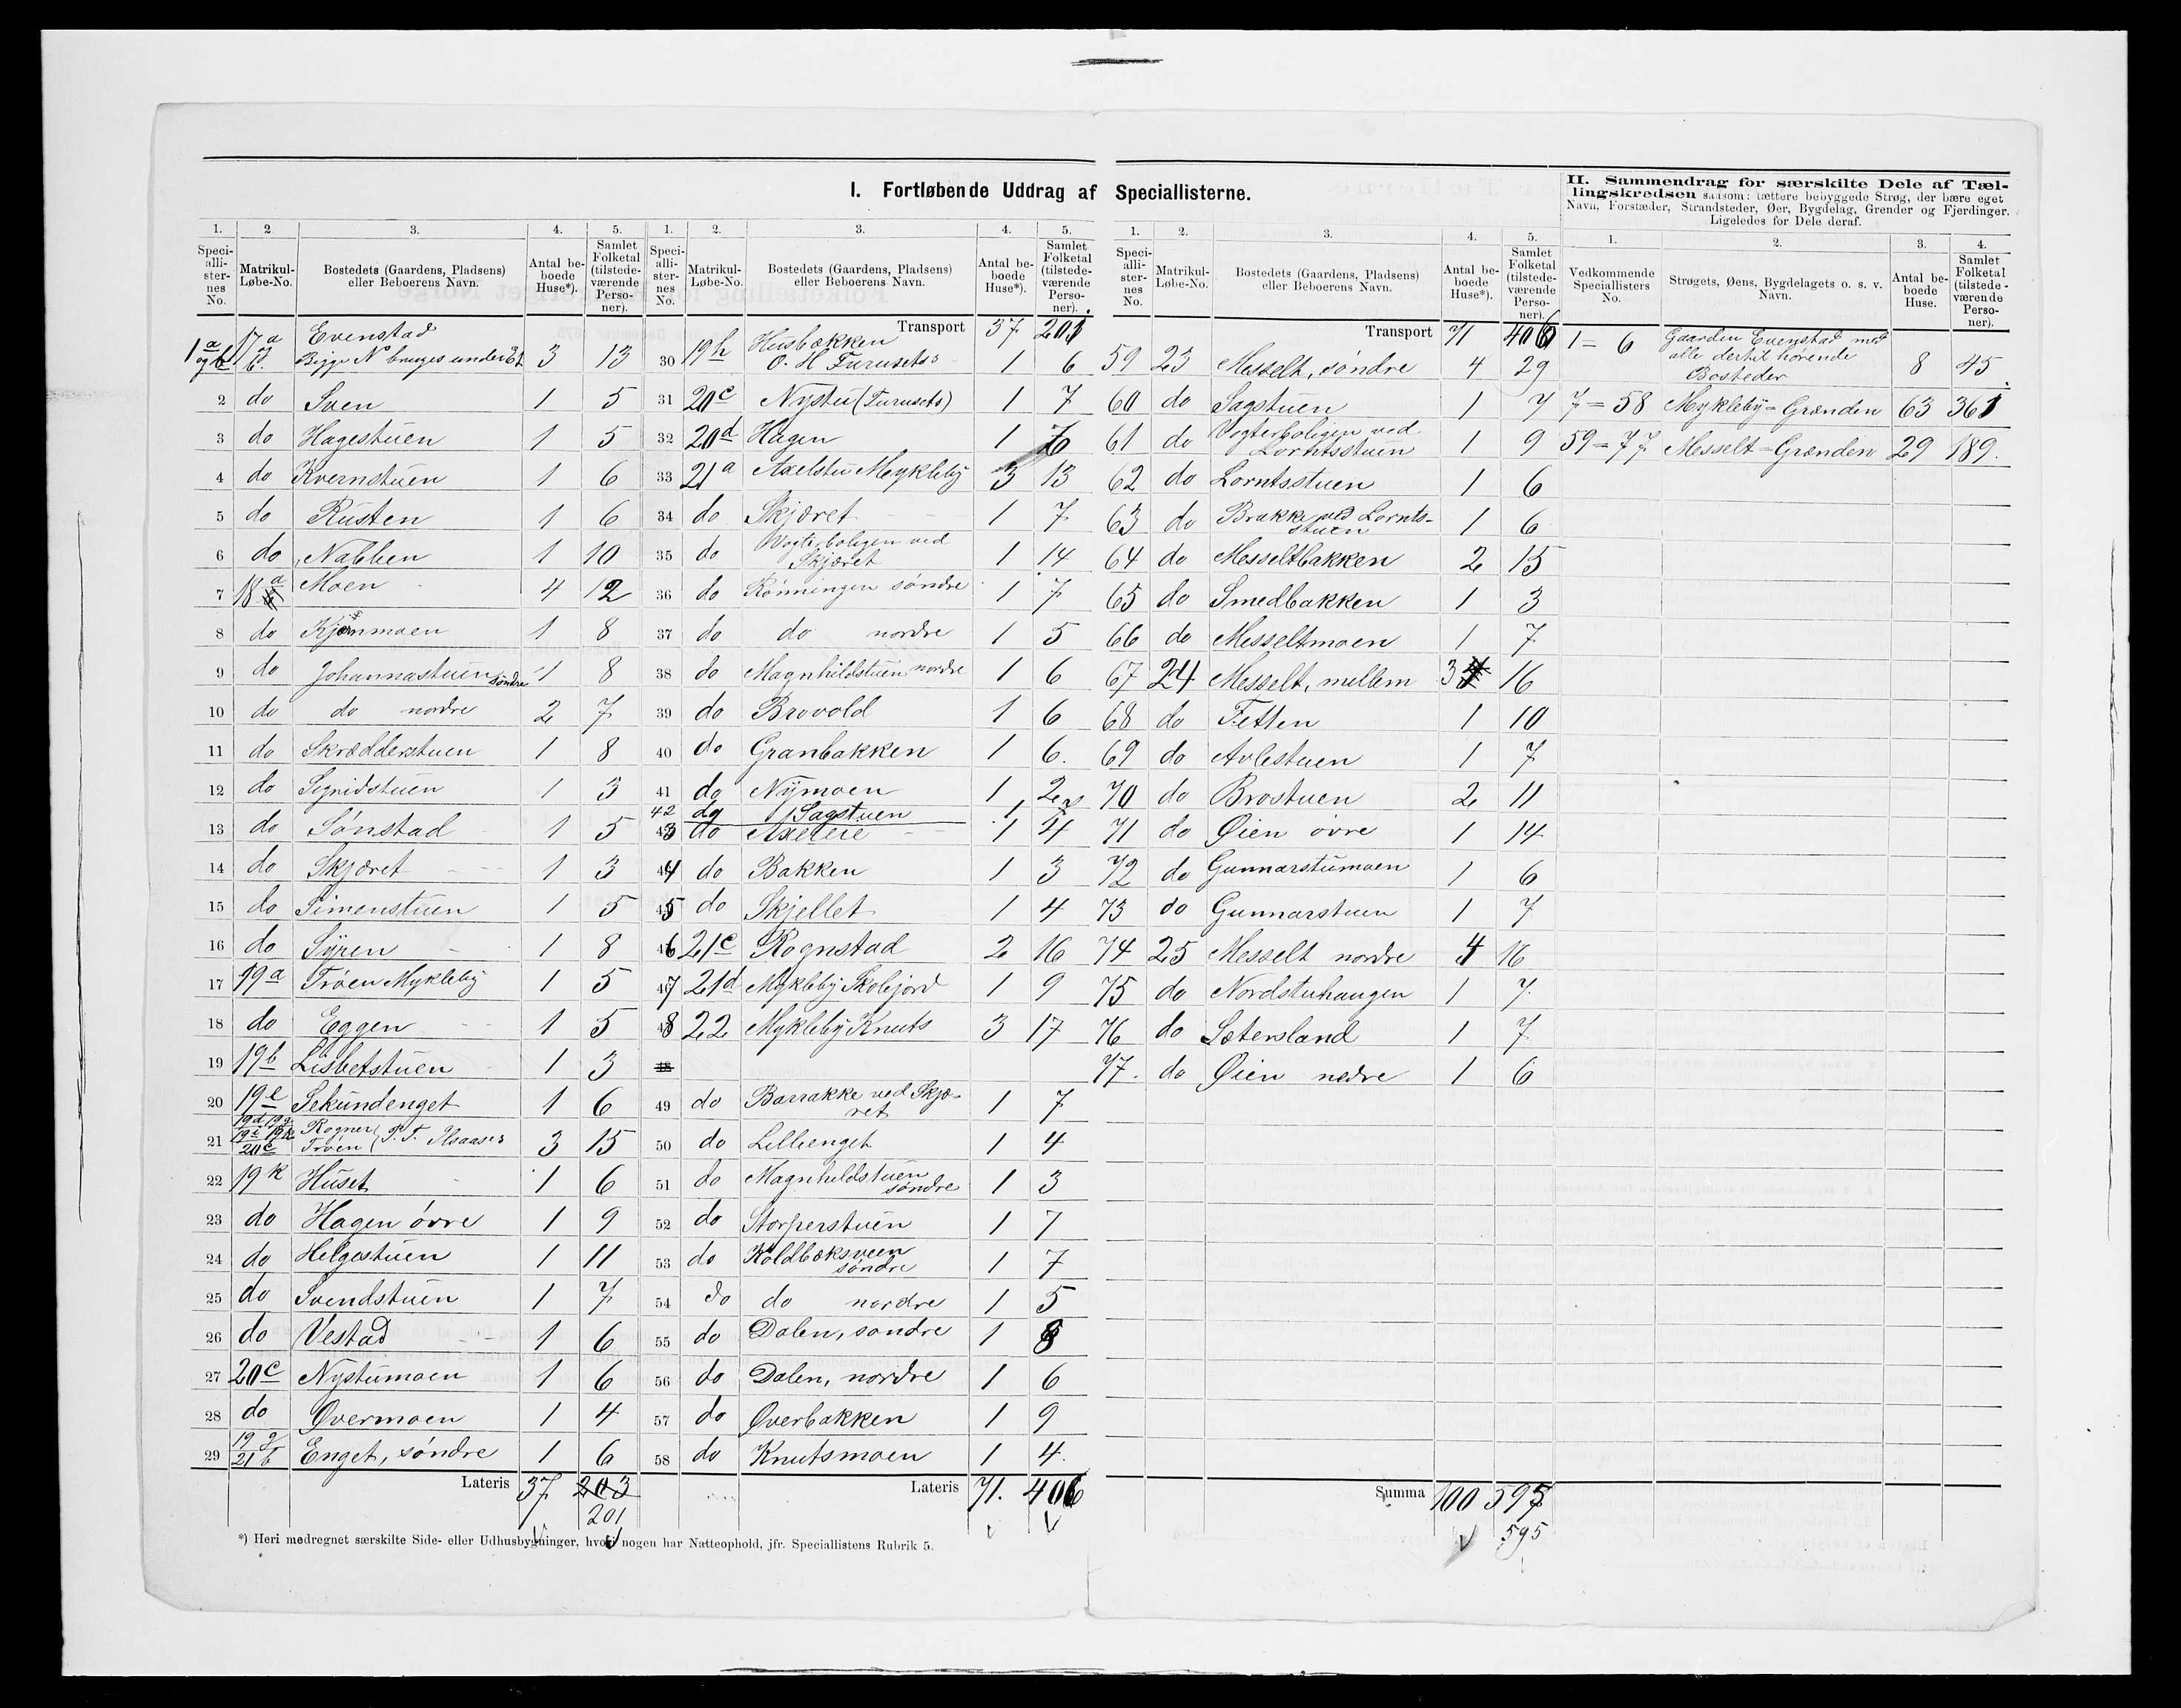 I. Fortløbende Uddrag af Speciallisterne.
1. 2. 3. 4. 5.
Speciallisternes No. | Matrikul-Løbe-No. | Bostedets (Gaardens, Pladsens) eller Beboerens Navn. | Antal beboede Huse*). | Samlet Folketal (tilstedeværende Personer).
1 a og b | 17 a | Evenstad
Begge No bruges under Et | 3 | 13
2 | do | Sven | 1 | 5
3 | do | Hagestuen | 1 | 5
4 | do | Kvernstuen | 1 | 6
5 | do | Rusten | 1 | 6
6 | do | Nabben | 1 | 10
7 | 18 a | Moen | 4 | 12
8 | do | Kjernmoen | 1 | 8
9 | do | Johannastuen søndre | 1 | 8
10 | do | do nordre | 2 | 7
11 | do | Skrædderstuen | 1 | 8
12 | do | Signidstuen | 1 | 3
13 | do | Sønstad | 1 | 5
14 | do | Skjæret | 1 | 3
15 | do | Simenstuen | 1 | 5
16 | do | Syren | 1 | 8
17 | 19a | Trøen Mykleby | 1 | 5
18 | do | Eggen | 1 | 5
19 | 19b | Lisbetstuen | 1 | 3
20 | 19e | Sekundenget | 1 | 6
21 | 19d 19g 19i 20c | Rogner Trøen | 3 | 15
22 | 19k | Huset | 1 | 6
23 | do | Hagen øvre | 1 | 9
24 | do | Helgestuen | 1 | 11
25 | do | Svendstuen | 1 | 7
26 | do | Vestad | 1 | 6
27 | 20c | Nystumoen | 1 | 6
28 | do | Øvermoen | 1 | 4
29 | 19 g 21 b | Enget, søndre | 1 | 6
Lateris | 37 | 203
201
*) Heri medregnet særskilte Side- eller Udhusbygninger, hvori nogen har Natteophold, jfr. Speciallistens Rubrik 5.
1. 2. 3. 4. 5.
Speciallisternes No. | Matrikul-Løbe-No. | Bostedets (Gaardens, Pladsens) eller Beboerens Navn. | Antal beboede Huse*). | Samlet Folketal (tilstedeværende Personer).
Transport | 37 | 201
30 | 19h | Husbakken
O. H Furusets | 1 | 6
31 | 20c | Nystu (Furusets) | 1 | 7
32 | 20d | Hagen | 1 | 7
33 | 21a | Axelstu Mykleby | 3 | 13
34 | do | Skjæret | 1 | 7
35 | do | Vogterboligen ved Skjæret | 1 | 14
36 | do | Rønningen søndre | 1 | 7
37 | do | do nordre | 1 | 5
38 | do | Magnhildstuen nordre | 1 | 6
39 | do | Brovold | 1 | 6
40 | do | Granbakken | 1 | 6.
41 | do | Nymoen | 1 | 2
42 | do | Sagstuen | 1
43 | do | Axeleie | 1 | 4
44 | do | Bakken | 1 | 3
45 | do | Skjellet | 1 | 4
46 | 21c | Rognstad | 2 | 16
47 | 21d | Mykleby Skolejord | 1 | 9
48 | 22 | Mykleby Knuts | 3 | 17
48
49 | do | Barrakke ved Skjæret | 1 | 7
50 | do | Lillienget | 1 | 4
51 | do | Magnhildstuen søndre | 1 | 3
52 | do | Storperstuen | 1 | 7
53 | do | Koldbæksveen søndre | 1 | 7
54 | do | do nordre | 1 | 5
55 | do | Dalen, søndre | 1 | 8
56 | do | Dalen, nordre | 1 | 6
57 | do | Øverbakken | 1 | 9
58 | do | Knutsmoen | 1 | 4.
Lateris | 71. | 406
1. 2. 3. 4. 5.
Speciallisternes No. | Matrikul-Løbe-No. | Bostedets (Gaardens, Pladsens) eller Beboerens Navn. | Antal beboede Huse*). | Samlet Folketal (tilstedeværende Personer).
Transport | 71 | 406
59 | 23 | Messelt, søndre | 4 | 29
60 | do | Sagstuen | 1 | 7
61 | do | Vogterboligen ved Lorntsstuen | 1 | 9
62 | do | Lorntsstuen | 1 | 6
63 | do | Brakke ved Lorntsstuen | 1 | 6
64 | do | Messeltbakken | 2 | 15
65 | do | Smedbakken | 1 | 3
66 | do | Messeltmoen | 1 | 7
67 | 24 | Messelt, mellem | 3 | 16
68 | do | Fetten | 1 | 10
69 | do | Avlestuen | 1 | 7
70 | do | Brostuen | 2 | 11
71 | do | Øien øvre | 1 | 14
72 | do | Gunnarstumoen | 1 | 6
73 | do | Gunnarstuen | 1 | 7
74 | 25 | Messelt nordre | 4 | 16
75 | do | Nordstuhaugen | 1 | 7
76 | do | Sætersland | 1 | 7
77. | do | Øien nedre | 1 | 6
Summa | 100 | 597
595
II. Sammendrag for særskilte Dele af Tællingskredsen saasom: tættere bebyggede Strøg, der bære eget Navn, Forstæder, Strandsteder, Øer, Bygdelag, Grender og Fjerdinger. Ligeledes for Dele deraf.
1. 2. 3. 4.
Vedkommende Speciallisters No. | Strøgets, Øens, Bygdelagets o. s. v. Navn. | Antal beboede Huse. | Samlet Folketal (tilstedeværende Personer).
1 = 6 | Gaarden Evenstad med alle dertil hørende Bosteder | 8 | 45.
7 = 58 | Mykleby = Grænden | 63 | 361
59 = 77 | Messelt = Grænden | 29 | 189.